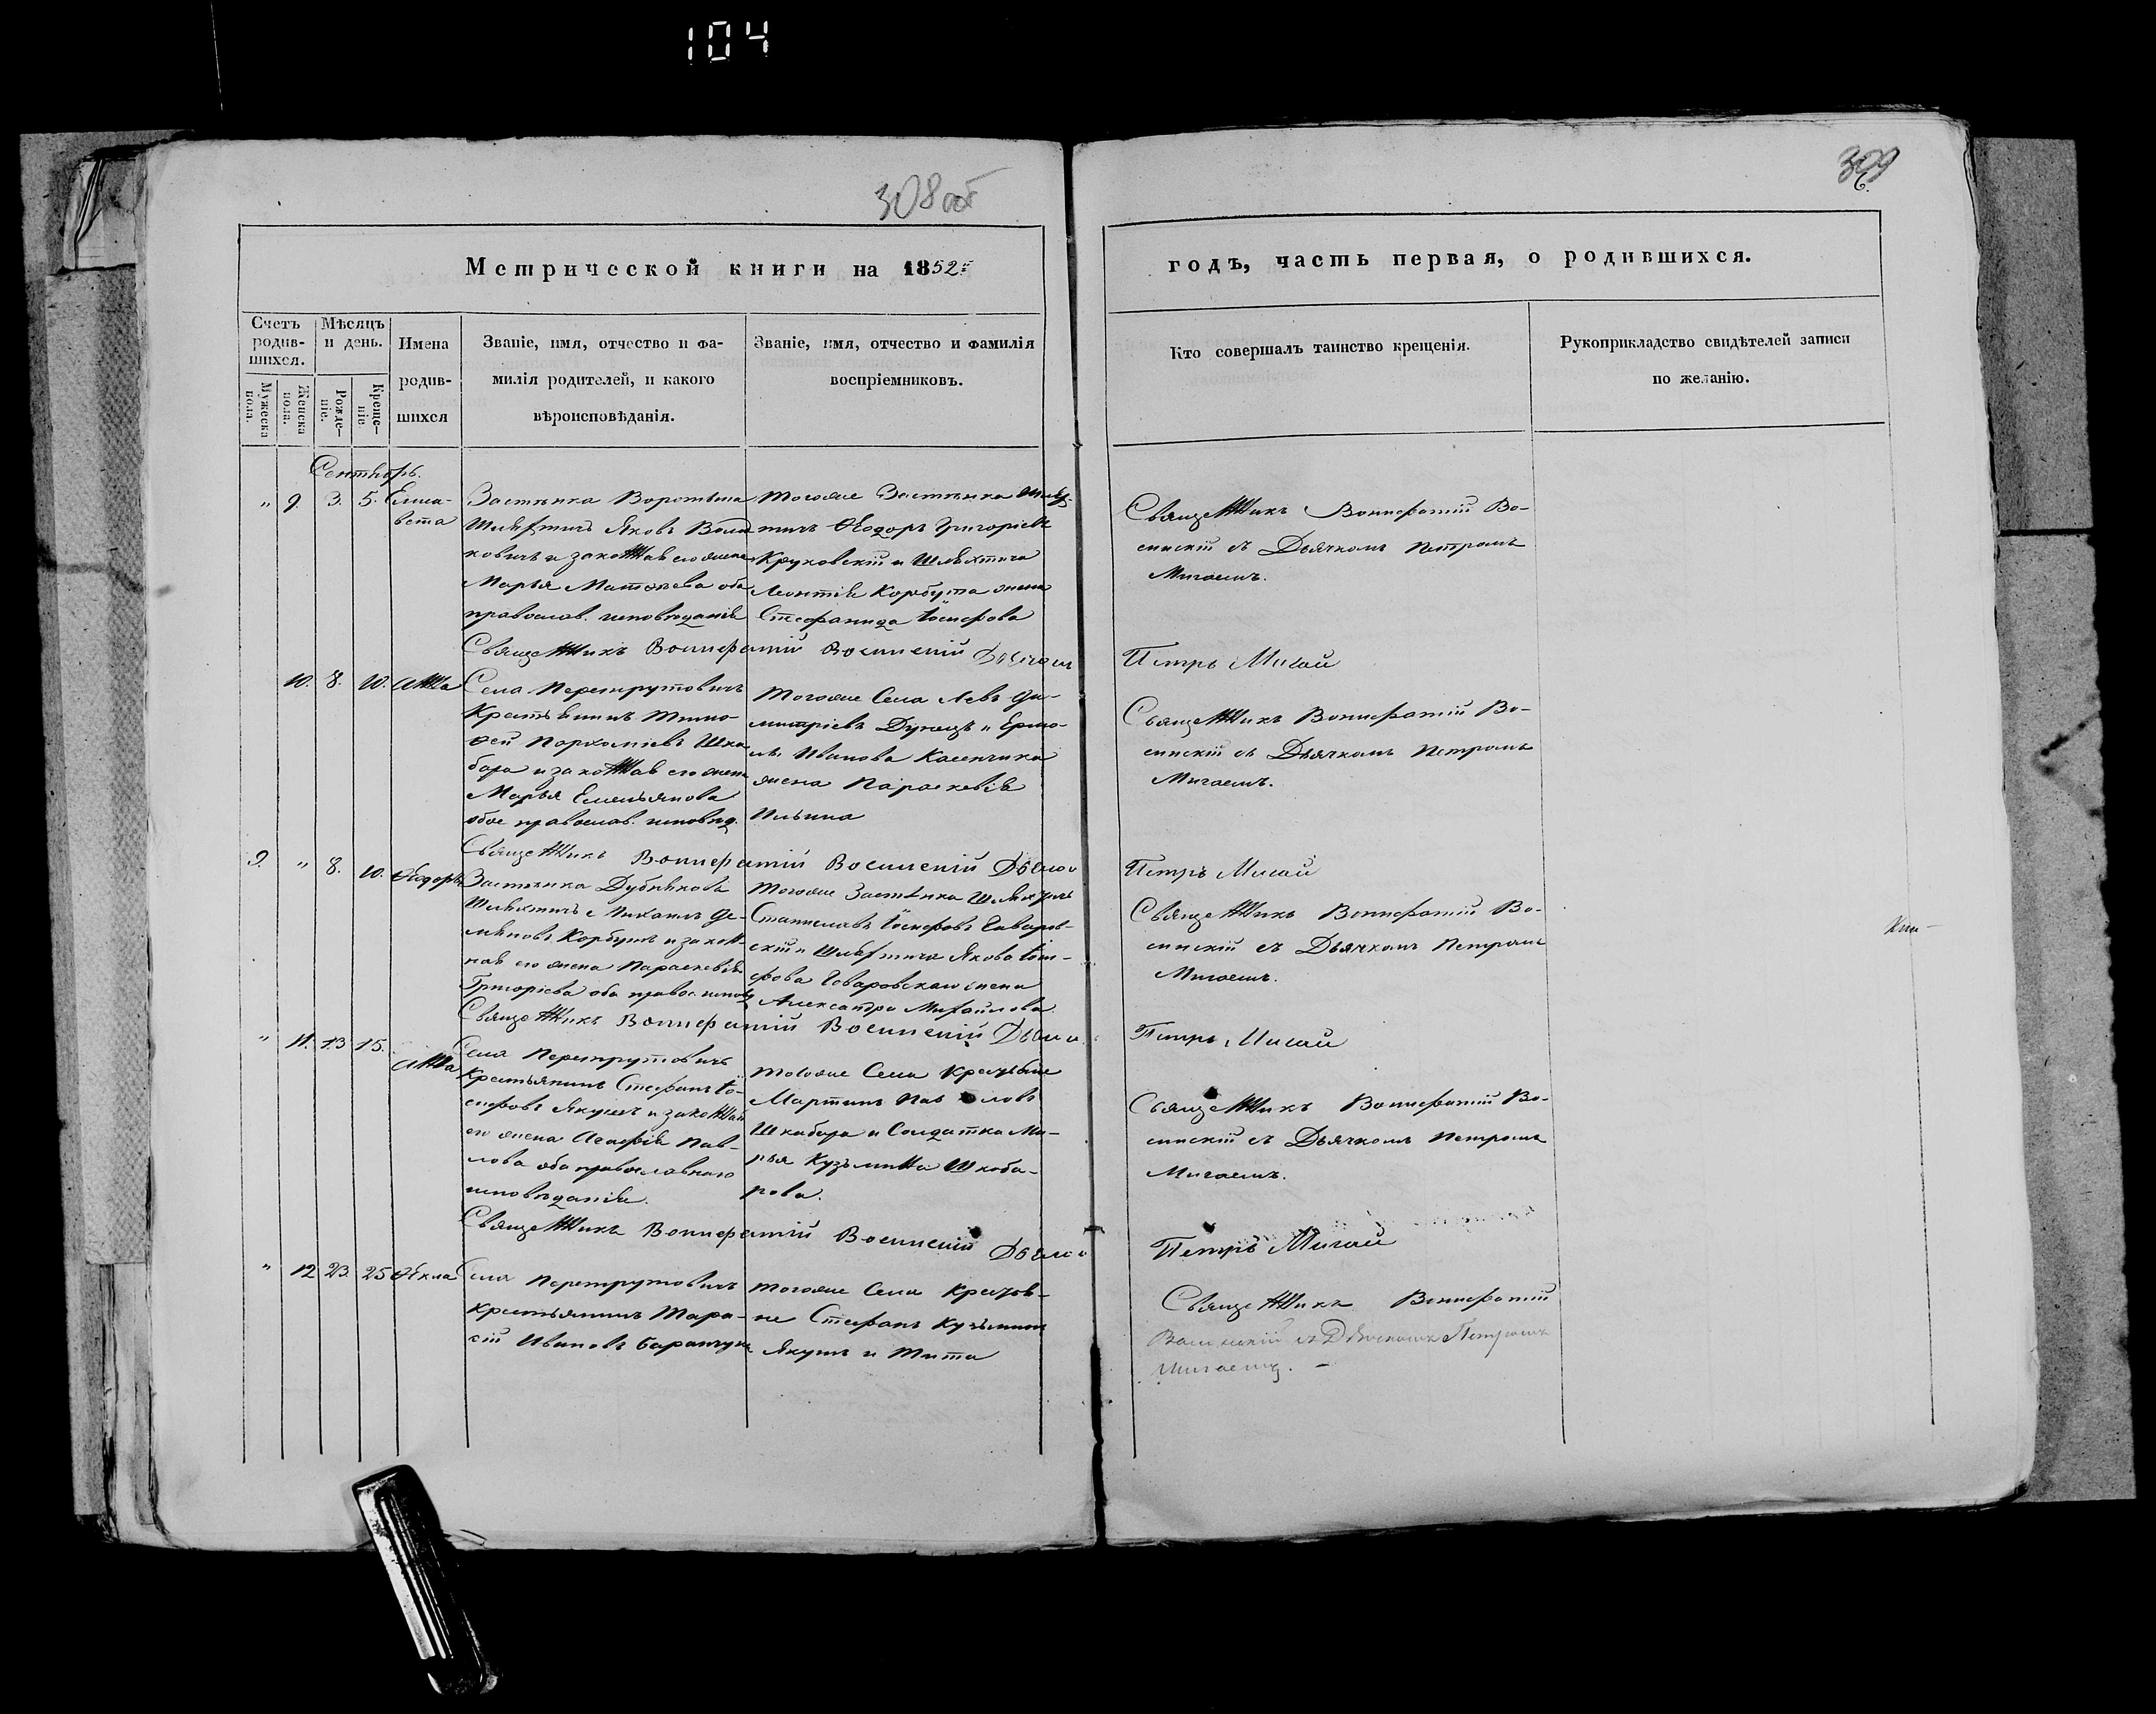 104
308 об
309
Метрической книги на 1852й
годъ, часть первая, о родившихся.
Счетъ родив-шихся.
Мѣсяцъ и день.
Имена родив-шихся
Званіе, имя, отчество и фа-
милія родителей, и какого
вѣроисповѣданія.
Званіе, имя, отчество и фамилія
воспріемниковъ.
Мужеска пола.
Женска пола.
Рожде-ніе.
Креще-ніе
Кто совершалъ таинство крещенія.
Рукоприкладство свидѣтелей записи
по желанію.
Сентябрь.
" 9. 3. 5. Елиса-
вета
Застѣнка
Шляхтичъ Яковъ
и законная его жена
Марья Матѳѣева оба
православ. исповѣданія
Тогоже Застѣнка Шлях-
тичъ Ѳеодоръ Григоріевъ
Круковскій и Шляхтича
Леонтія Корбута жена
Стефанида Іосифова
Священникъ Вонифатій Во-
синскій съ Дьячкомъ Петромъ
Мигаемъ.
Священникъ Вонифатій Восинскій Дьячокъ
Петръ Мигай
10. 8. 10. Анна
Села Перетрутовичъ
Крестьянинъ Тимо-
ѳей Пархоміевъ Шка-
бара и законная его жена
Марья Емельянова
обое православ. исповѣд.
Тогоже Села Левъ Ди-
митріевъ Дунецъ и Ермо-
лы Иванова Касенчика
жена Параскевія
Ильина
Священникъ Вонифатій Во-
синскій съ Дьячкомъ Петромъ
Мигаемъ.
Священникъ Вонифатій Восинскій Дьячок
Петръ Мигай
9. " 8. 10. Ѳеодоръ
Застѣнка Дубняковъ
Шляхтичъ Михаилъ Де-
мяновъ Корбутъ и закон-
ная его жена Параскевія
Григоріева оба правос. исповѣд
Тогоже Застѣнка Шляхтичъ
Станиславъ Іосифовъ Гаваров-
скій и Шляхтича Якова Іоси-
фова Геваровскаго жена
Александра Михайлова.
Священникъ Вонифатій Во-
синскій съ Дьячкомъ Петромъ
Мигаемъ.
Священникъ Вонифатій Восинскій Дьячо
Петръ Мигай
" 11. 13 15. Анна
Села Перетрутовичъ
Крестьянинъ Стефанъ Іо-
сифовъ Якушъ и законная
его жена Агафія Пав-
лова оба православнаго
исповѣданія.
Тогоже Села Крестьяне
Мартинъ Павловъ
Шкабара и Солдатка Ма-
рья Кузьмина Шкаба-
рова.
Священникъ Вонифатій Во-
синскій съ Дьячкомъ Петромъ
Мигаемъ.
Священникъ Вонифатій Восинскій Дьячо
Петръ Мигай
" 12 23. 25 Ѳекла
Села Перетрутовичъ
Крестьянинъ Тара-
сій Ивановъ Баранчукъ
Тогоже Села Крестья-
не Стефанъ Кузьминъ
Якушъ и Тита
Священникъ Вонифатій
Восинскій съ Дьячкомъ Петромъ
Мигаемъ. -